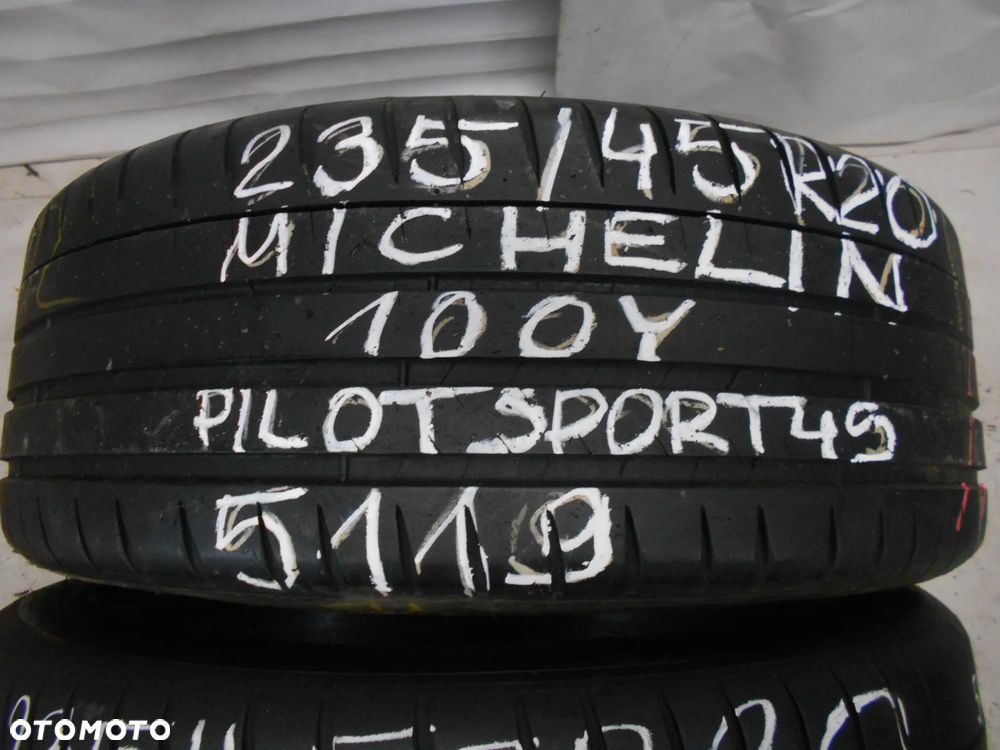 235/45 R20
MICHELIN
100Y
PILOT SPORT 4S
5119
OTOMOTO